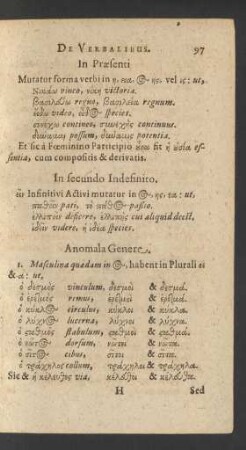 DE VERBALIBUS. 97
In Præsenti
Mutatur forma verbi in η. εια. ος. ης. vel ις: ut,
Νικάω vinco, νίκη victoria.
βασιλεύω regno, βασιλεία regnum.
εἴδω video, εἶδος species.
συνέχω contineo, συνεχὴς continuus.
δύναμαι possum, δύναμις potentia.
Et sic à Fœminino Participio οὖσα fit ἡ οὐσία es-
sentia, cum compositis & derivatis.
In secundo Indefinito.
εῖν Infinitivi Activi mutatur in ος. ης. εα: ut
παθεῖν pati, τὸ πάθος passio.
ἐλλιπεῖν deficere, ἐλλιπὴς cui aliquid deest.
ἰδεῖν videre, ἡ ἰδέα species.
Anomala Genere.
1. Masculina quædam in ος, habent in Plurali οι
& α: ut.
ὁ δεσμὸς vinculum, δεσμοὶ & δεσμά.
ὁ ἐρετμὸς remus, ἐρετμοὶ & ἐρετμά.
ὁ κύκλος circulus, κύκλοι & κύκλα.
ὁ λύχνος lucerna, λύχνοι & λύχνα.
ὁ σταθμὸς stabulum, σταθμοὶ & σταθμά.
ὁ νῶτος dorsum, νῶτοι & νῶτα.
ὁ σῖτος cibus, σῖτοι & σῖτα.
ὁ τράχηλος collum, τράχηλοι & τράχηλα.
Sic & ἡ κέλευθος via, κέλευθοι & κέλευθα.
H Sed